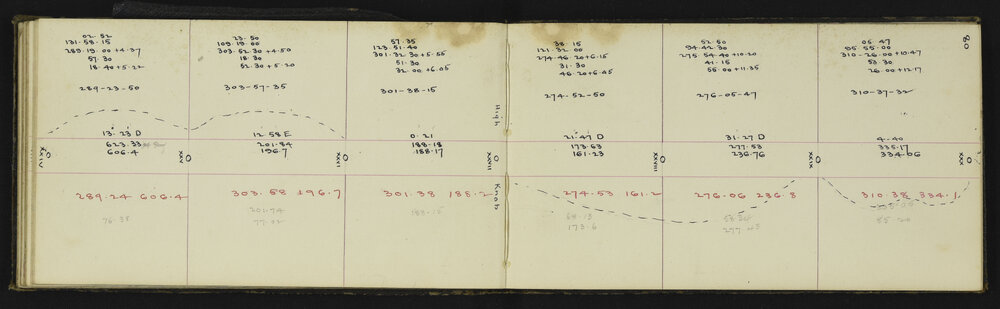 02.52
131.58.15
289.19.00 +4.37
57.30
18.40 +5.22
289-23-50
13.23 D
623.33
606.4
XXIV
289.24 606.4
76.38
23.50
109.19.00
303.52.30 +4.50
18.30
52.30 +5.20
303-57-35
12.58 E
201.84
196.7
XXV
303.58 196.7
201.74
77.02
57.35
123.51.40
301.32.30 +5.55
51.30
32.00 +6.05
301-38-15
0.21
188.18
188.17
XXVI
301.38 188.2
188.18
High
XXVII
Knob
38.15
121.32.00
274.46.20 +6.15
31.30
46.20 +6.45
274-52-50
21.47 D
173.63
161.23
XXVIII
274.53 161.2
68.13
173.6
52.50
94.42.30
275.54.40 +10.20
41.15
55.00 +11.35
276-05-47
31.27 D
277.53
236.76
XXIX
276.06 236.8
58.34
05.47
95.55.00
310-26.00 +10.47
53.30
26.00 +12.17
310-37-32
4.40
335.17
334.06
XXX
310.38 334.1
85.20
80